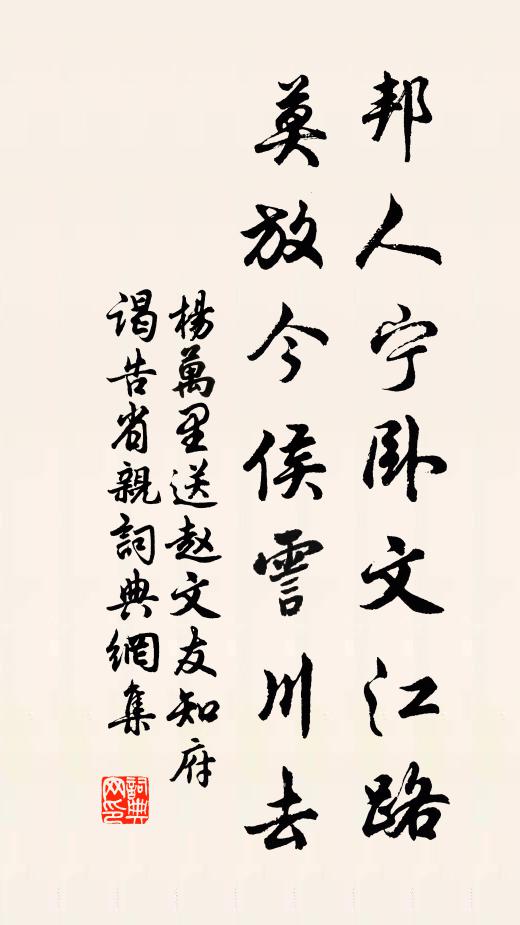 邦人宁卧文江路
莫放今侯霅川去
楊萬里送赵文友知府
谒告省親詞典網集
詞典
网印